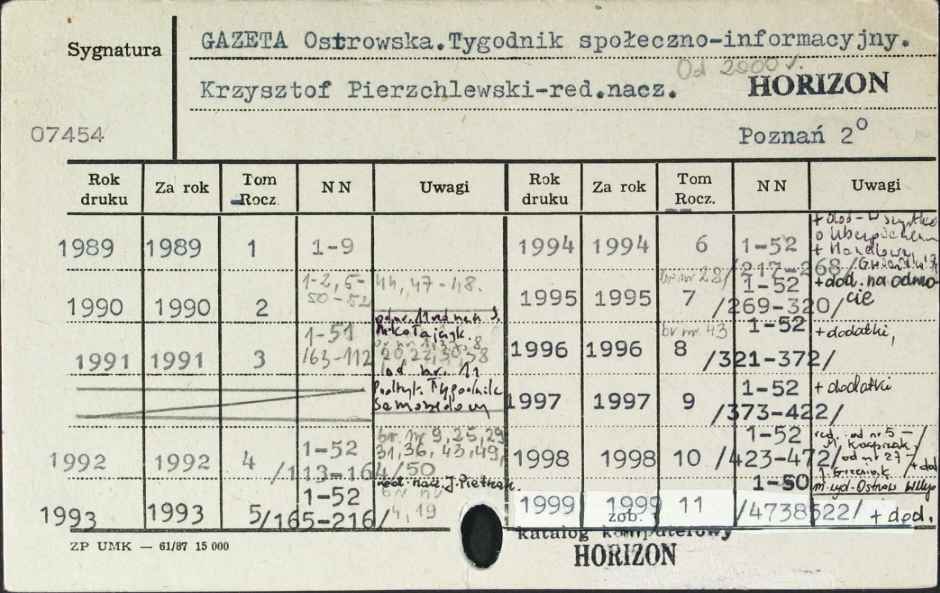 Sygnatura
GAZETA Ostrowska.Tygodnik społeczno-informacyjny.
Od 2000 r.
Krzysztof Pierzchlewski-red.nacz. HORIZON
07454
Poznań 2°
Rok druku Za rok Tom Rocz. NN Uwagi Rok druku Za rok Tom Rocz. NN Uwagi
1989 1989 1 1-9
1990 1990 2 1-2, 5- 44, 47-48.
50-52
1991 1991 3 1-51
/63-112 20,22,30,38
od nr. 11
Podtyt. Tygodnik
Samorządowy
1992 1992 4 1-52 br. nr 9, 25, 29
/113-164/50 31, 36, 43, 49,
red. nacz. J. Pietrzak.
1993 1993 5 1-52 br nr
/165-216/ 4, 19
1994 1994 6 1-52
/217-268/
1995 1995 7 br nr 28/ 1-52 + dod. na odwro
/269-320/ cie
1996 1996 8 br nr 43 1-52 + dodatki,
/321-372/
1997 1997 9 1-52 + dodatki
/373-422/
1998 1998 10 1-52 red. od nr 5 -
/423-472/ od nr 27 -
+ dod
1999 1999 11 1-50 m. wyd. Ostrów Wlkp
/4738522/ + dod.
zob.
katalog komputerowy
HORIZON
ZP UMK — 61/87 15 000